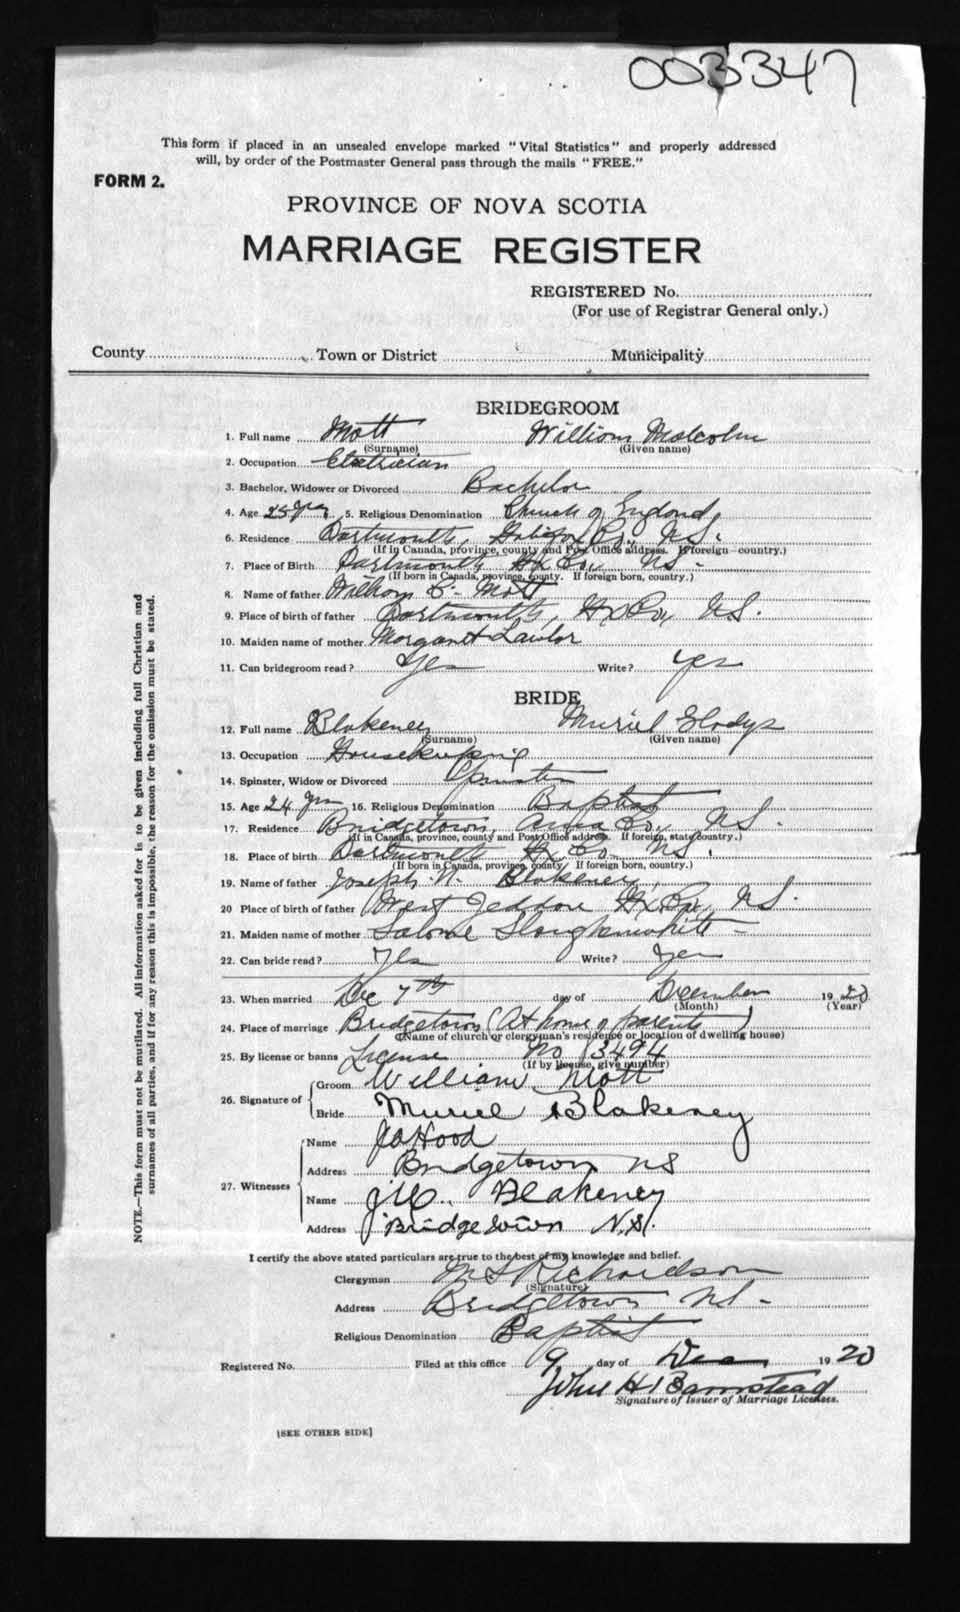 003347
This form if placed in an unsealed envelope marked "Vital Statistics" and properly addressed
will, by order of the Postmaster General pass through the mails "FREE."
FORM 2.
PROVINCE OF NOVA SCOTIA
MARRIAGE REGISTER
REGISTERED No.
(For use of Registrar General only.)
County Town or District Municipality
BRIDEGROOM
1. Full name Mott William Malcolm
(Surname) (Given name)
2. Occupation Electrician
3. Bachelor, Widower or Divorced Bachelor
4. Age 25 yrs 5. Religious Denomination Church of England
6. Residence Dartmouth, Halifax Co., N.S.
(If in Canada, province, county and Post Office address. If foreign—country.)
7. Place of Birth Dartmouth Hx Co., NS-
(If born in Canada, province, county. If foreign born, country.)
8. Name of father William C- Mott
9. Place of birth of father Dartmouth, Hx Co, NS.
10. Maiden name of mother Margaret Lawlor
11. Can bridegroom read? Yes Write? Yes
BRIDE
12. Full name Blakeney Muriel Gladys
(Surname) (Given name)
13. Occupation Housekeeping
14. Spinster, Widow or Divorced Spinster
15. Age 24 yrs 16. Religious Denomination Baptist
17. Residence Bridgetown, Anna Co., N.S.
(If in Canada, province, county and Post Office address. If foreign, state country.)
18. Place of birth Dartmouth Hx Co NS.
(If born in Canada, province, county. If foreign born, country.)
19. Name of father Joseph Blakeney
20 Place of birth of father West Jeddore Hx Co, NS.
21. Maiden name of mother Salome Slaughenwhite-
22. Can bride read? Yes Write? Yes
23. When married Dec 7th day of December 1920
(Month) (Year)
24. Place of marriage Bridgetown (At home of parents)
(Name of church or clergyman's residence or location of dwelling house)
25. By license or banns License No 13494
(If by license, give number)
26. Signature of Groom William Mott
Bride Muriel Blakeney
27. Witnesses Name Hood
Address Bridgetown NS
Name Blakeney
Address Bridgetown N.S.
I certify the above stated particulars are true to the best of my knowledge and belief.
Clergyman Richardson
(Signature)
Address Bridgetown NS-
Religious Denomination Baptist
Registered No. Filed at this office 9 day of Dec 1920
John H Bamstead
Signature of Issuer of Marriage Licenses.
[SEE OTHER SIDE]
NOTE.—This form must not be mutilated. All information asked for is to be given including full Christian and
surnames of all parties, and if for any reason this is impossible, the reason for the omission must be stated.